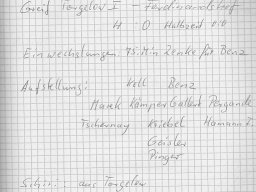 Greif Torgelow I - Ferdinandshof
4 : 0 Halbzeit 0:0
Einwechslungen 75. Min Zenke für Benz
Aufstellung: Koll Benz
Marek Kämper Gallert Pergande
Tschernay Kriebel Hamann F.
Geisler
Pinger
Schiri: aus Torgelow